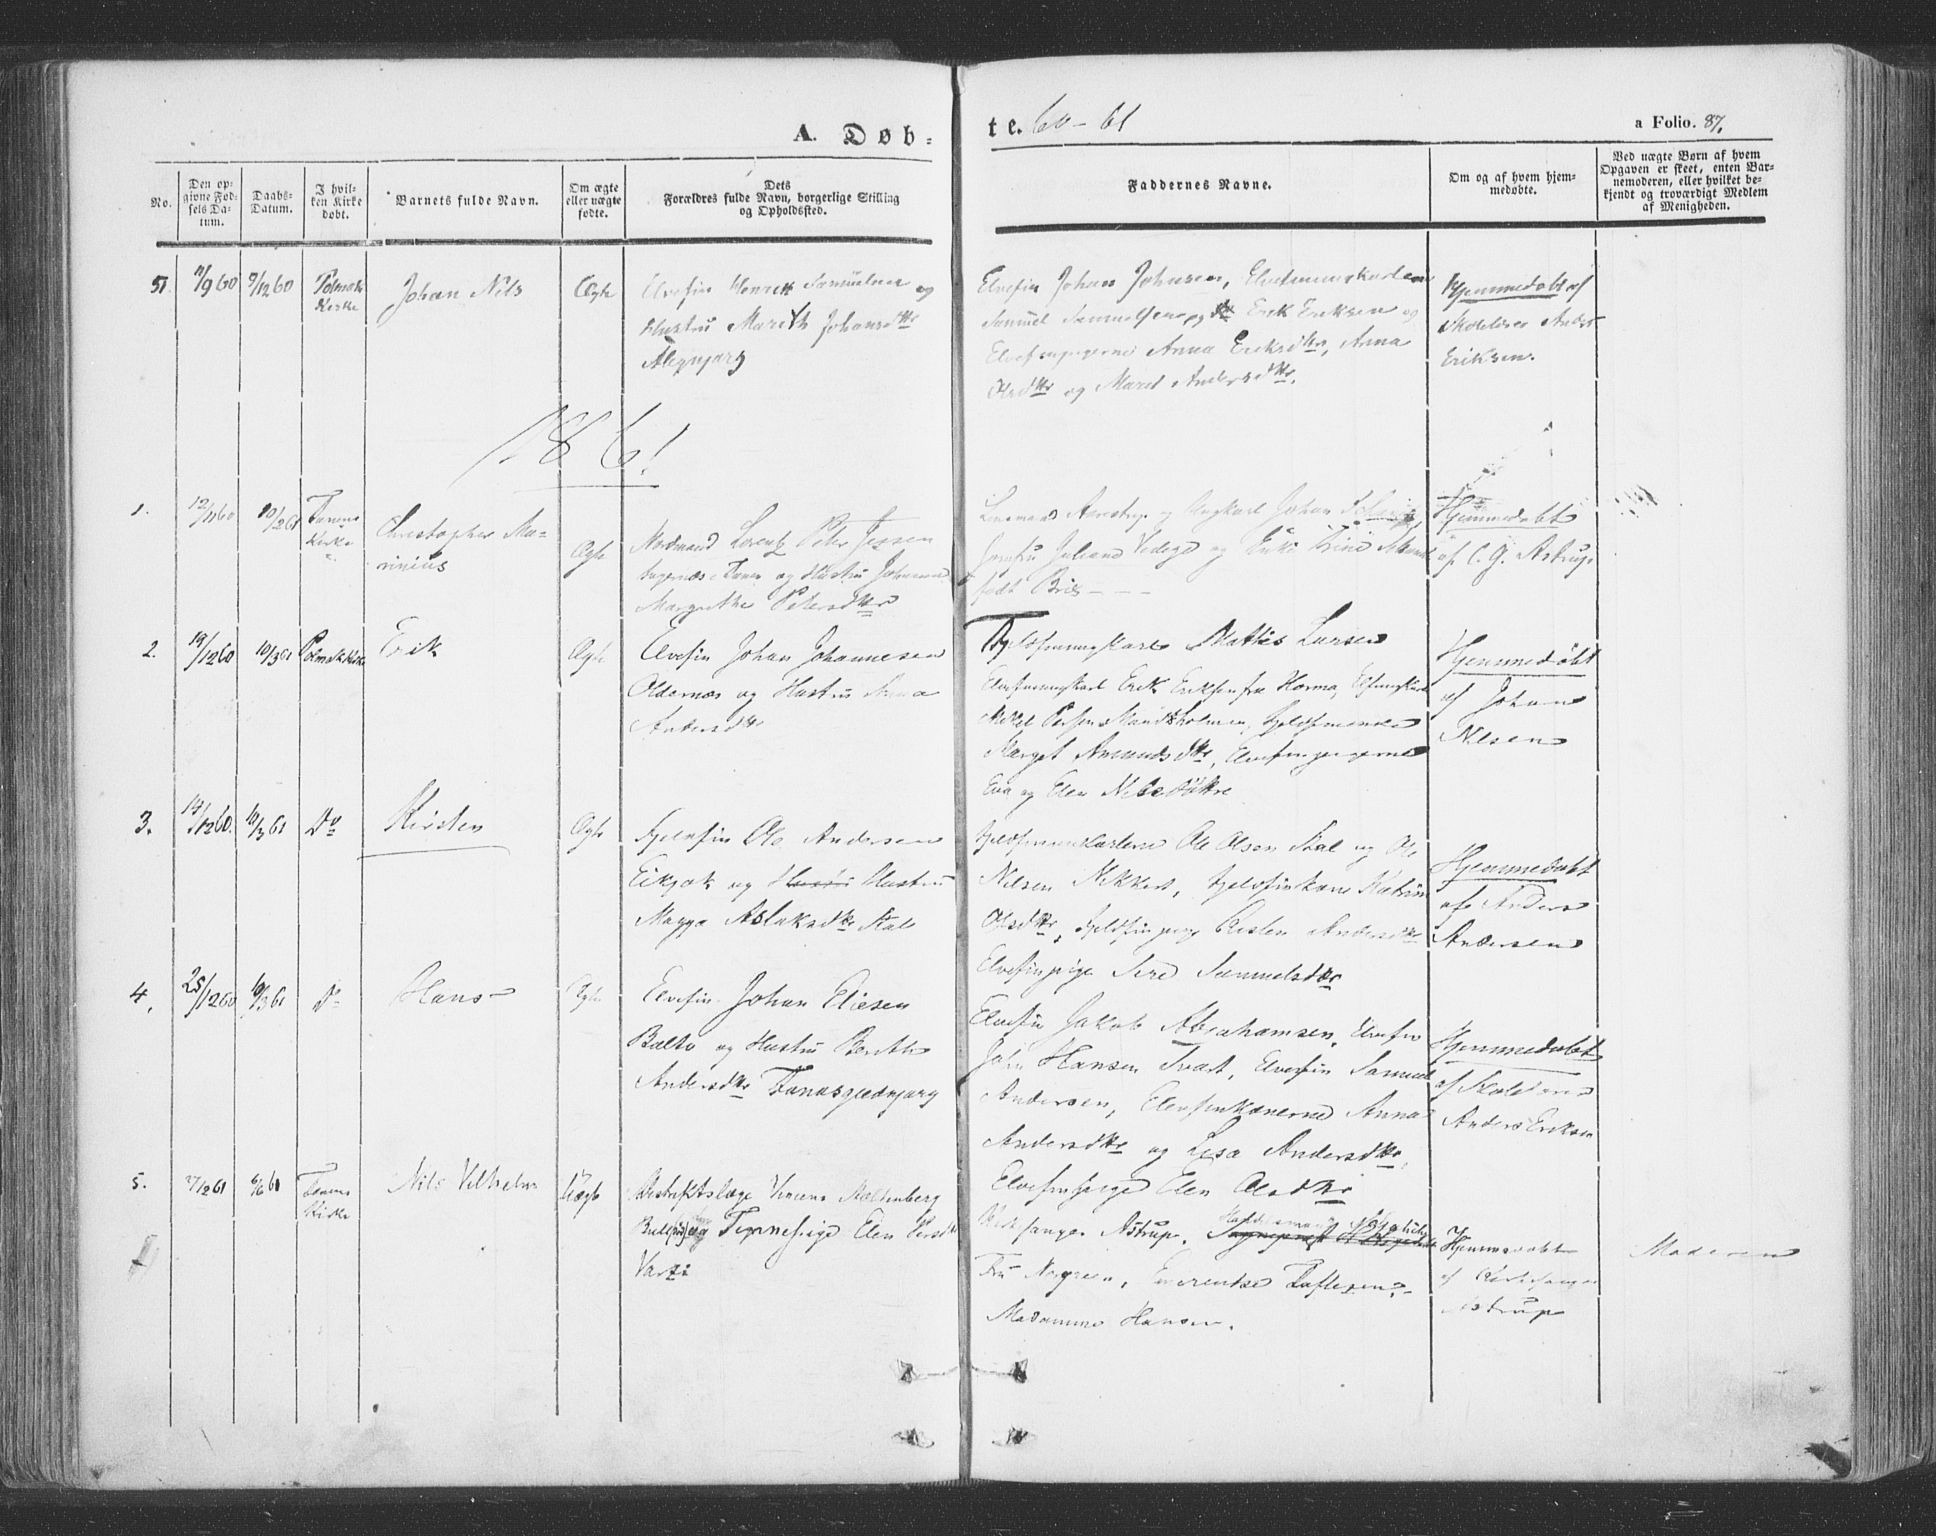 A. Døb-
te. 60-61
a Folio. 87.
No.
Den op-
givne Fød-
sels Da-
tum.
Daabs-
Datum.
I hvil-
ken Kirke
døbt.
Barnets fulde Navn.
Om ægte
eller uægte
fødte.
Dets
Forældres fulde Navn, borgerlige Stilling
og Opholdssted.
Faddernes Navne.
Om og af hvem hjem-
medøbte.
Ved uægte Børn af hvem
Opgaven er skeet, enten Bar-
nemoderen, eller hvilket be-
kjendt og troværdigt Medlem
af Menigheden.
51.
11/9 60
9/12 60
Polmak
Kirke
Johan Nils
Ægte
Elvefin Henrik Samuelsen og
Hustru Marith Johansdttr
Elvefin Johan Johnsen,
Samuel Samuelsen og Erik Eriksen og
Anna Eriksdttr, Anna
Olsdttr og Maret Andersdttr.
Hjemmedøbt af
Skolelærer Anders
Eriksen.
1861
1.
12/11 60
10/2 61
Tanens
Kirke
Christopher Ma-
rinius
Ægte
Nordmand Lorentz Peter Jessen
i Tanen og Hustru Johanna
Margrethe Petersdttr
og Ungkarl Johan
Jomfru Juliane og Enke Trine
født
Hjemmedøbt
af C. G. Astrup
2.
19/12 60
10/3 61
Polmak Kirke
Erik
Ægte
Elvefin Johan Johannesen
Oldernæs og Hustru Anna
Andersdttr
Fjeldfinungkarl Mathis Larsen
Elvefinungkarl Erik Eriksen fra Horma,
Mikel Persen Mandsholmen,
Marget Amundsdttr, Elvefinpigerne
Eva og Elen Nilsdøttre
Hjemmedøbt
af Johan
Nilsen
3.
14/12 60.
10/3 61
Do
Kirsten
Ægte
Fjeldfin Ole Andersen
og Hustru Hustru
Magga Aslaksdttr
Ole Olsen og Ole
Nilsen Fjeldfinkone Katrine
Olsdttr, Fjeldfinpige Kristen Andersdttr
Elvefinpige Siri Samuelsdttr
Hjemmedøbt
af Anders
Andersen
4.
25/12 60
10/3 61
Do
Hans
Ægte
Elvefin Johan Eliesen
Balto og Hustru Berith
Andersdttr
Elvefin Jakob Abrahamsen, Elvefin
John Hansen Elvefin Samuel
Andersen, Elvefinkonerne Anna
Andersdttr og Lisa Andersdttr,
Elvefinpige Elen Olsdttr
Hjemmedøbt
af Skolelærer
Anders Eriksen
5.
27/2 61
6/6 61
Tanens
Kirke
Nils Vilhelm
Uægte
Distriktslæge Vincens Stoltenberg
Bull og Tjenestepige Elen Persdttr
Kirkesanger Astrup,
Fru Norgreen,
Madamme Hansen.
Hjemmedøbt
af Kirkesanger
Astrup
Moderen